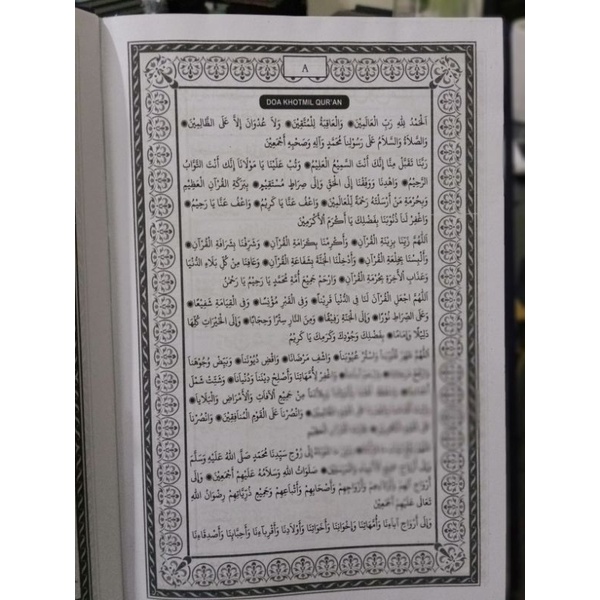 ٨
DOA KHOTMIL QUR'AN
اَلْحَمْدُ لِلّٰهِ رَبِّ الْعَالَمِيْنَ وَالْعَاقِبَةُ لِلْمُتَّقِيْنَ وَلَا عُدْوَانَ اِلَّا عَلَى الظَّالِمِيْنَ
وَالصَّلَاةُ وَالسَّلَامُ عَلَى رَسُوْلِنَا مُحَمَّدٍ وَآلِهِ وَصَحْبِهِ أَجْمَعِيْنَ
رَبَّنَا تَقَبَّلْ مِنَّا إِنَّكَ أَنْتَ السَّمِيْعُ الْعَلِيْمُ وَتُبْ عَلَيْنَا يَا مَوْلَانَا إِنَّكَ أَنْتَ التَّوَّابُ
الرَّحِيْمُ وَاهْدِنَا وَوَفِّقْنَا إِلَى الْحَقِّ وَإِلَى صِرَاطٍ مُسْتَقِيْمٍ بِبَرَكَةِ الْقُرْآنِ الْعَظِيْمِ
وَبِحُرْمَةِ مَنْ أَرْسَلْتَهُ رَحْمَةً لِلْعَالَمِيْنَ وَاعْفُ عَنَّا يَا كَرِيْمُ وَاعْفُ عَنَّا يَا رَحِيْمُ
وَاغْفِرْ لَنَا ذُنُوْبَنَا بِفَضْلِكَ يَا أَكْرَمَ الْأَكْرَمِيْنَ
اَللّٰهُمَّ زَيِّنَّا بِزِيْنَةِ الْقُرْآنِ وَأَكْرِمْنَا بِكَرَامَةِ الْقُرْآنِ وَشَرِّفْنَا بِشَرَافَةِ الْقُرْآنِ
وَأَلْبِسْنَا بِخِلْعَةِ الْقُرْآنِ وَأَدْخِلْنَا الْجَنَّةَ بِشَفَاعَةِ الْقُرْآنِ وَعَافِنَا مِنْ كُلِّ بَلَاءِ الدُّنْيَا
وَعَذَابِ الْآخِرَةِ بِحُرْمَةِ الْقُرْآنِ وَارْحَمْ جَمِيْعَ أُمَّةِ مُحَمَّدٍ يَا رَحِيْمُ يَا رَحْمٰنُ
اَللّٰهُمَّ اجْعَلِ الْقُرْآنَ لَنَا فِى الدُّنْيَا قَرِيْنًا وَفِى الْقَبْرِ مُؤْنِسًا وَفِى الْقِيَامَةِ شَفِيْعًا
وَعَلَى الصِّرَاطِ نُوْرًا وَإِلَى الْجَنَّةِ رَفِيْقًا وَمِنَ النَّارِ سِتْرًا وَحِجَابًا وَإِلَى الْخَيْرَاتِ كُلِّهَا
دَلِيْلًا وَإِمَامًا بِفَضْلِكَ وَجُوْدِكَ وَكَرَمِكَ يَا كَرِيْمُ
عُيُوْبَنَا وَاشْفِ مَرْضَانَا وَاقْضِ دُيُوْنَنَا وَبَيِّضْ وُجُوْهَنَا
لِأُمَّهَاتِنَا وَأَصْلِحْ دِيْنَنَا وَدُنْيَانَا وَشَتِّتْ شَمْلَ
مِنْ جَمِيْعِ الْآفَاتِ وَالْأَمْرَاضِ وَالْبَلَايَا
وَانْصُرْنَا عَلَى الْقَوْمِ الْمُنَافِقِيْنَ وَانْصُرْنَا
إِلَى رُوْحِ سَيِّدِنَا مُحَمَّدٍ صَلَّى اللهُ عَلَيْهِ وَسَلَّمَ
صَلَوَاتُ اللهِ وَسَلَامُهُ عَلَيْهِمْ أَجْمَعِيْنَ وَإِلَى
وَأَزْوَاجِهِمْ وَأَصْحَابِهِمْ وَأَتْبَاعِهِمْ وَجَمِيْعِ ذُرِّيَّاتِهِمْ رِضْوَانُ اللهِ
تَعَالَى عَلَيْهِمْ أَجْمَعِيْنَ
وَإِلَى أَرْوَاحِ آبَاءِنَا وَأُمَّهَاتِنَا وَإِخْوَانِنَا وَأَخَوَاتِنَا وَأَوْلَادِنَا وَأَقْرِبَاءِنَا وَأَحِبَّاءِنَا وَأَصْدِقَاءِنَا